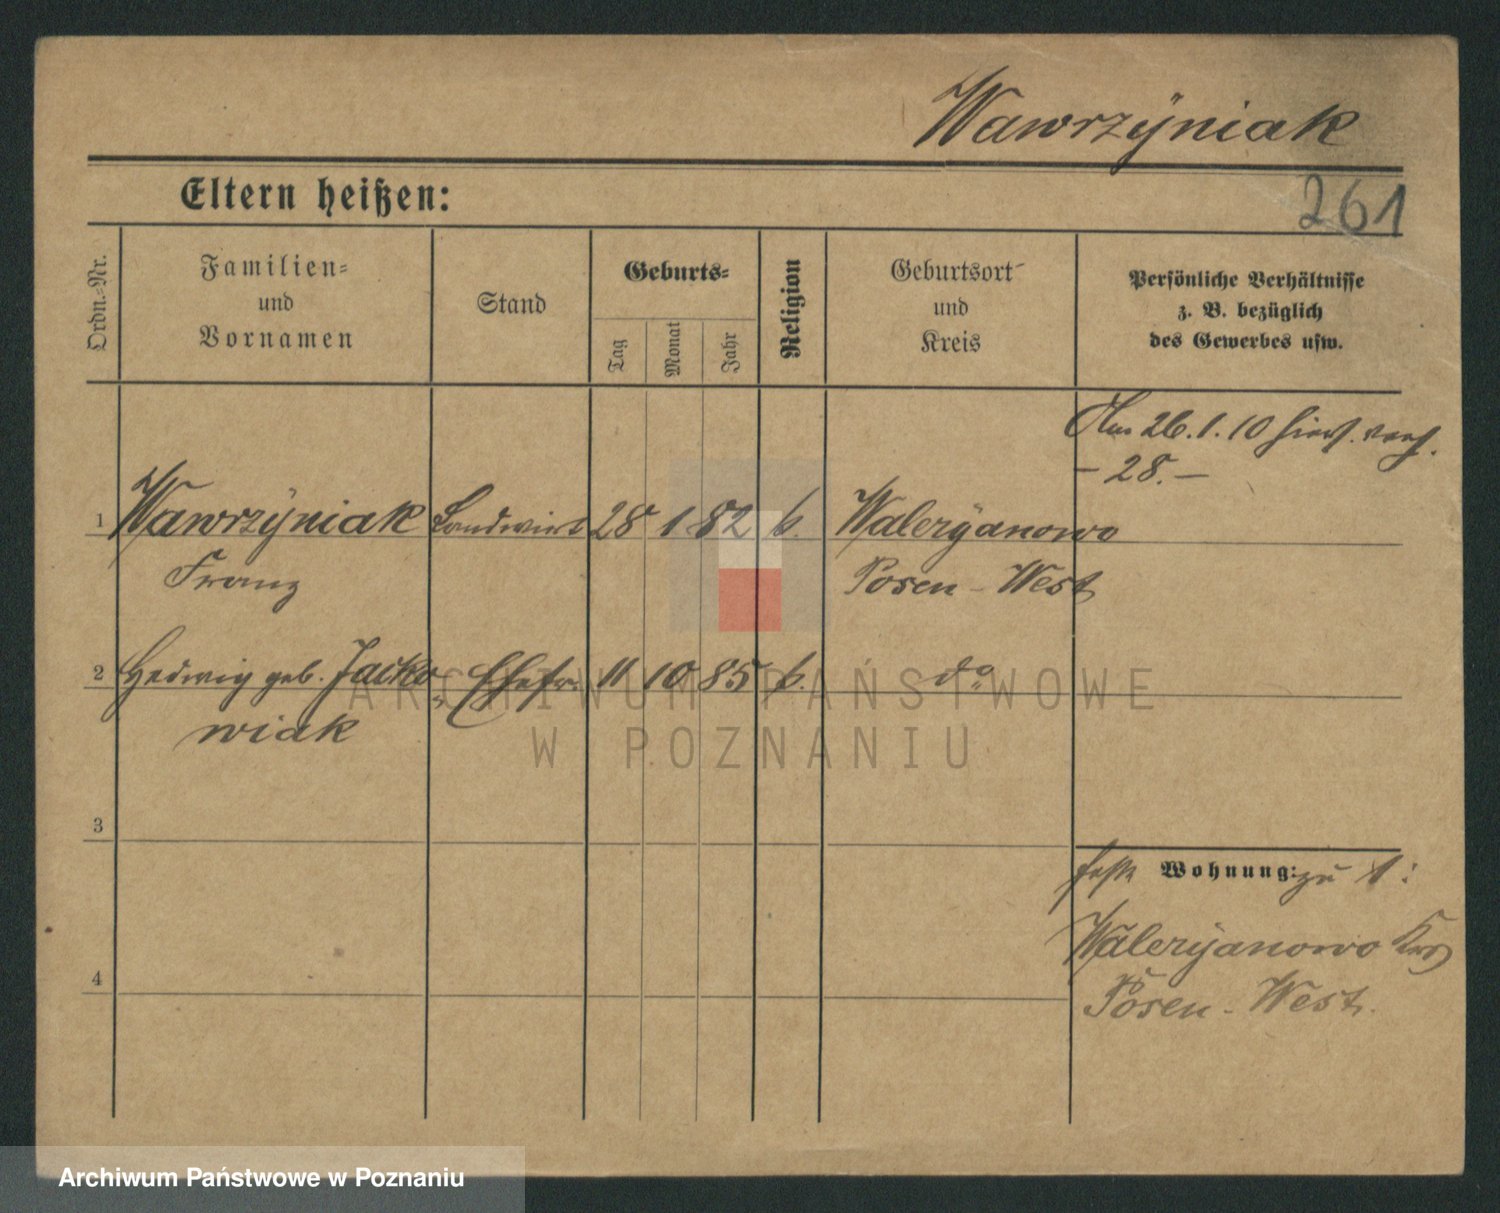 Wawrzyniak
261
Eltern heißen:
Ordn.-Nr.
Familien-
und
Vornamen
Stand
Geburts-
Tag
Monat
Jahr
Religion
Geburtsort
und
Kreis
Persönliche Verhältnisse
z. B. bezüglich
des Gewerbes usw.
Am 26.1.10 hier
– 28. –
1 Wawrzyniak Landwirt 28 1 82 k. Waleryanowo
Franz Posen - West
2 Hedwig geb. Jacko- Ehefr. 11 10 85 k. do
wiak
3
4
feste Wohnung: zu 1:
Waleryanowo Krs
Posen - West.
ARCHIWUM PAŃSTWOWE
W POZNANIU
Archiwum Państwowe w Poznaniu